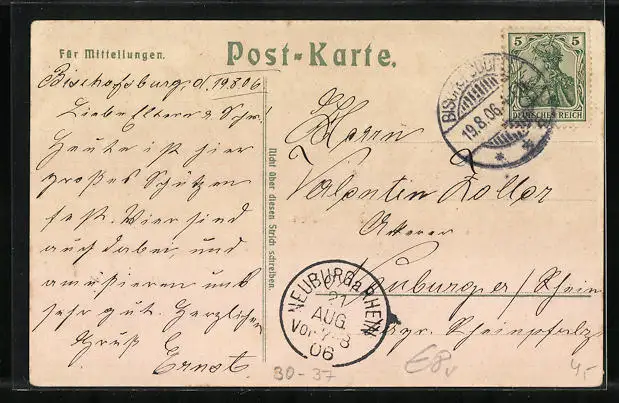 Für Mitteilungen.
Post-Karte.
5
DEUTSCHES REICH
BISCHOFSBURG
19.8.06
Bischofsburg, d. 19.8.06
Liebe Eltern u. Schw.!
Heute ist hier
großes Schützen
fest. Wir sind
auch dabei, und
amüsieren uns
sehr gut. Herzlichen
Gruß Ernst.
Nicht über diesen Strich schreiben.
Herrn
Valentin Zoller
Neuburg a/Rhein
Rheinpfalz
NEUBURG a. RHEIN
21
AUG.
Vor. 7-8
06
30-37
€8
4,-